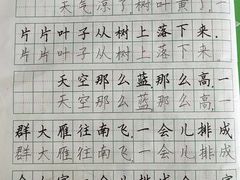 天气凉了树叶黄了,一
片片叶子从树上落下来.
片片叶子从树上落下来.
天空那么蓝,那么高,一
天空那么蓝,那么高,一
群大雁往南飞,一会儿排成
群大雁往南飞,一会儿排成